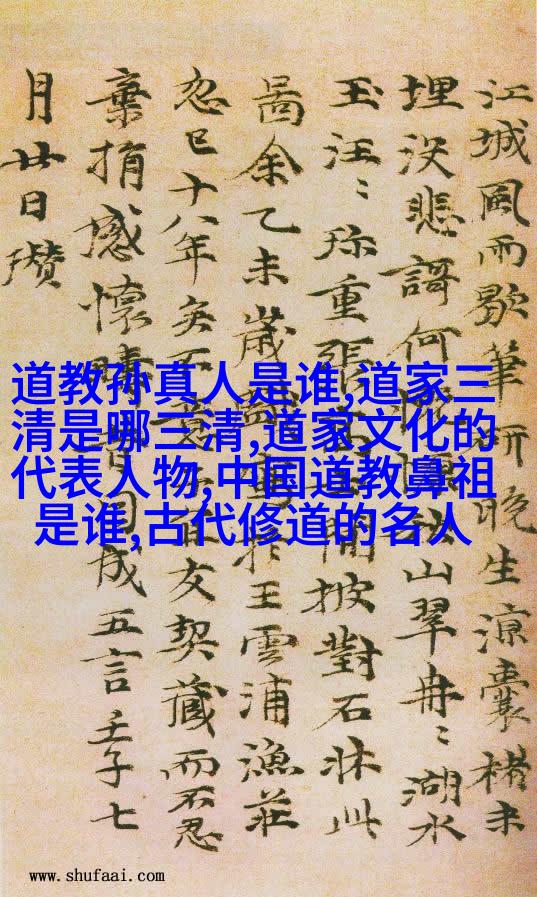 江城風雨歇筆研晚生涼囊楮未
埋没悲謌何山翠冉〻湖水
玉汪〻珎重張披對石牀此
啚余乙未歲王雲浦漁莊
忽已十八年矣友契藏而不忍
棄捐感懷成五言壬子七
月廿日瓚
道教孙真人是谁,道家三
清是哪三清,道家文化的
代表人物,中国道教鼻祖
是谁,古代修道的名人
www.shufaai.com